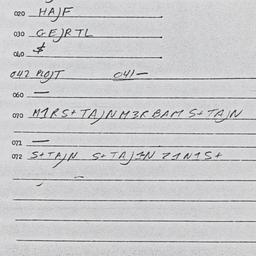 020 HAJF
030 GEJRTL
040 $
042 PLOJT 041 —
060 —
070 M1RS+TAJNM3RBAMS+TAJN
071 —
072 S+TAJN S+TAJIN Z1N1S+